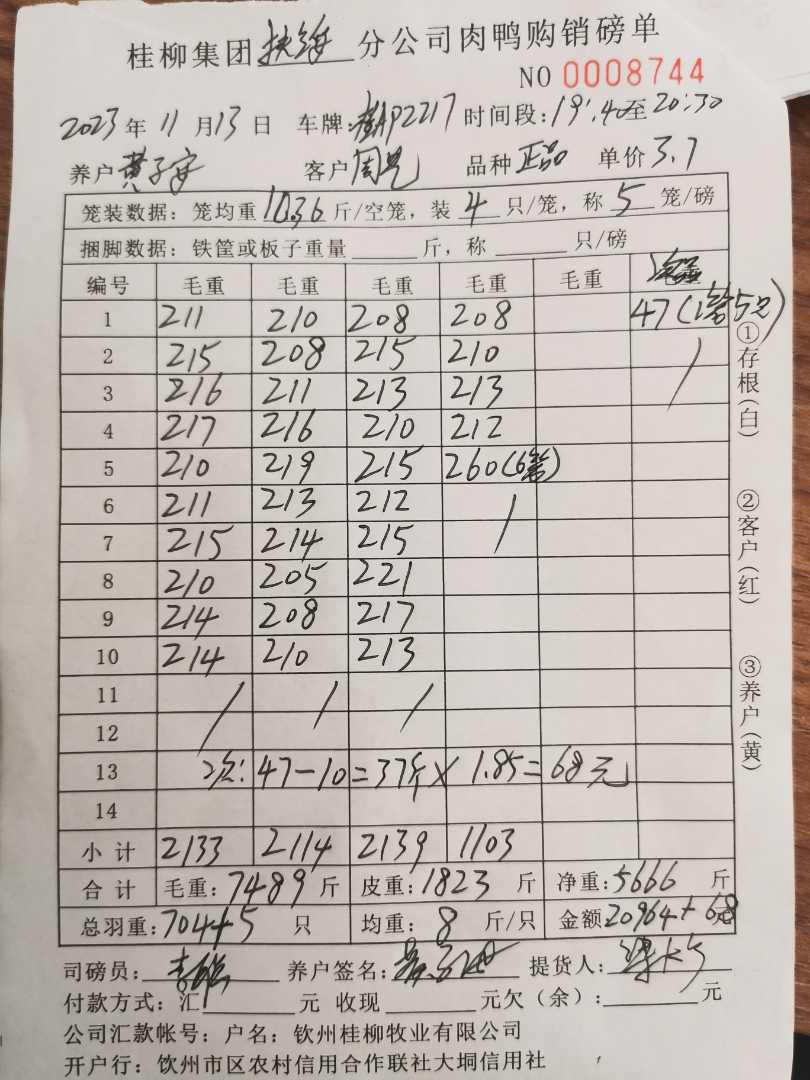 桂柳集团扶绥分公司肉鸭购销磅单
NO 0008744
2023年11月13日 车牌:桂AP2217 时间段:19:40至20:30
养户 黄子安 客户 周 品种 正品 单价 3.7
笼装数据: 笼均重 10.36 斤/空笼, 装 4 只/笼, 称 5 笼/磅
捆脚数据: 铁筐或板子重量 斤, 称 只/磅
编号 毛重 毛重 毛重 毛重 毛重 次品
1 211 210 208 208 47(1笼5只)
2 215 208 215 210
3 216 211 213 213
4 217 216 210 212
5 210 219 215 260(6笼)
6 211 213 212
7 215 214 215
8 210 205 221
9 214 208 217
10 214 210 213
11
12
13 次: 47-10=37斤×1.85=68元
14
小计 2133 2114 2139 1103
合计 毛重:7489斤 皮重:1823斤 净重:5666斤
总羽重:704+5只 均重:8斤/只 金额20964+68元
司磅员: 养户签名: 提货人:
付款方式:汇 元 收现 元欠(余): 元
公司汇款帐号: 户名: 钦州桂柳牧业有限公司
开户行: 钦州市区农村信用合作联社大垌信用社
①存根(白)
②客户(红)
③养户(黄)